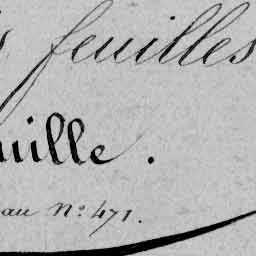 feuilles
uille.
au N° 471.